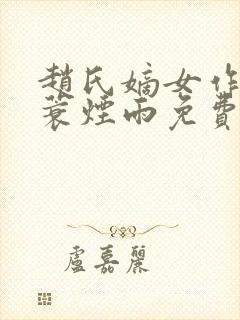 趙氏嫡女作
蓑煙雨免費
盧嘉麗